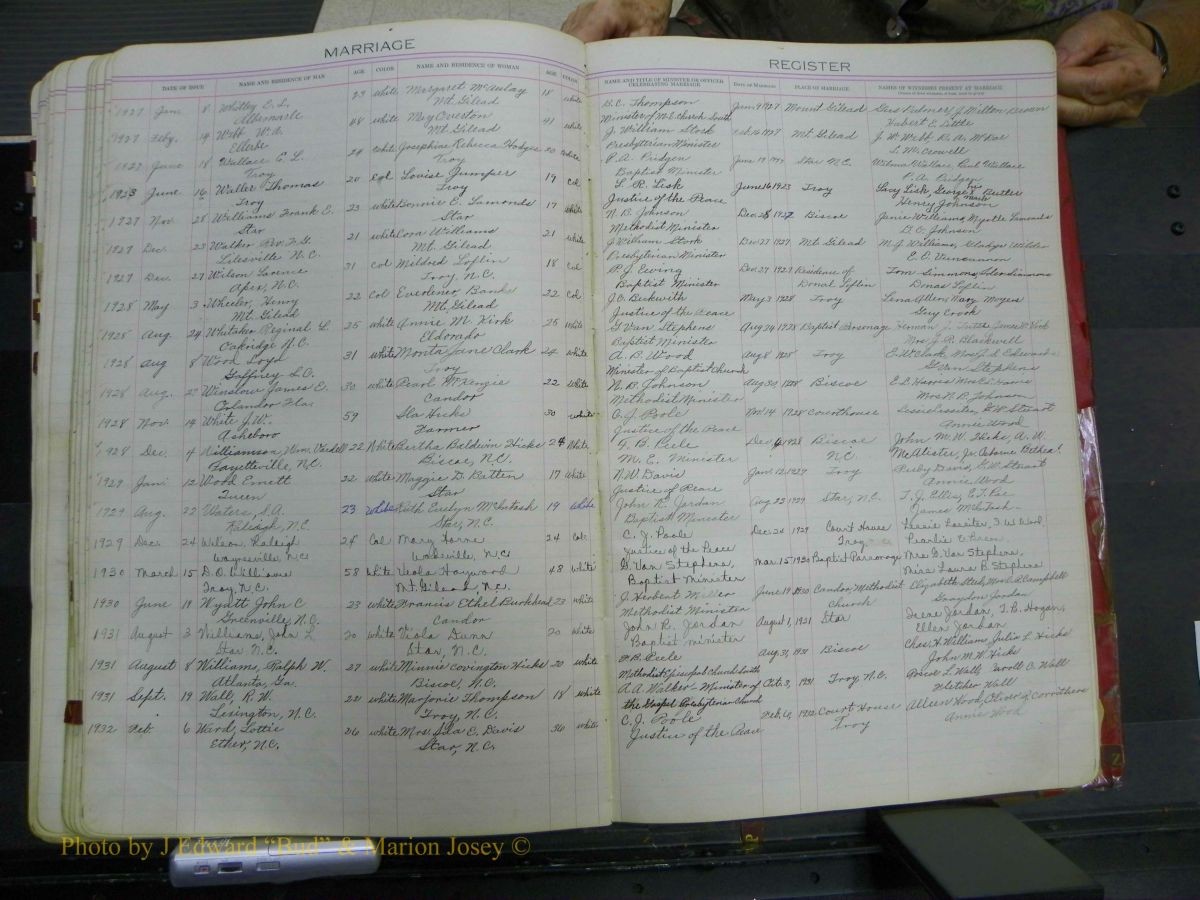 MARRIAGE
DATE OF ISSUE NAME AND RESIDENCE OF MAN AGE COLOR NAME AND RESIDENCE OF WOMAN AGE COLOR
1927 June 8 Whitley E. L. 23 white Margaret McAulay 18 white
Albemarle Mt. Gilead
1927 Feby. 19 Webb W. A. 48 white May 41 white
Ellerbe Mt. Gilead
1927 June 18 Wallace E. L. 24 white Josephine Rebecca Hodges 20 white
Troy Troy
1923 June 16 Waller Thomas 20 Col Louise Jumper 19 col
Troy Troy
1927 Nov 28 Williams Frank E. 23 white Bonnie E. Lamonds 17 white
Star Star
1927 Dec. 23 Walker 21 white Cora Williams 21 white
Lilesville N.C. Mt. Gilead
1927 Dec. 27 Wilson 31 col Mildred Loflin 18 col
Apex, N.C. Troy, N.C.
1928 May 3 Wheeler, Henry 22 Col Everlener Banks 22 col
Mt. Gilead Mt. Gilead
1928 Aug. 24 Whitaker Reginal L. 25 white Annie M. Kirk 25 white
Oakridge N.C. Eldorado
1928 Aug 8 Wood Loyd 31 white Monta Jane Clark 24 white
Gaffney S.C. Troy
1928 Aug. Winslow James E. 30 white Pearl McKenzie 22 white
Orlandor Fla. Candor
1928 Nov. 14 White J.W. 59 Ila Hicks 30 white
Asheboro Farmer
1928 Dec. 4 Williamson, Wm. 22 White Bertha Baldwin Hicks 24 White
Fayetteville, N.C. Biscoe, N.C.
1929 Jan. 12 Wood Emett 22 white Maggie D. Batten 17 White
Star
1929 Aug. 22 Waters, S.A. 23 White Ruth Evelyn McIntosh 19 White
Raleigh, N.C. Star, N.C.
1929 Dec. 24 Wilson, Raleigh 24 Col Mary Horne 24 Col
N.C. Wadeville, N.C.
1930 March 15 D.O. Williams 58 white Viola Haywood 48 white
Troy, N.C. Mt. Gilead, N.C.
1930 June 19 Wyatt John C 23 white Frances Ethel Burkhead 23 white
Greenville, N.C. Candor
1931 August 3 Williams, John L. 20 white Viola Dunn 20 white
Star, N.C. Star, N.C.
1931 August 8 Williams, Ralph W. 27 white Minnie Covington Hicks 20 white
Atlanta, Ga. Biscoe, N.C.
1931 Sept. 19 Wall, R.W. 22 white Marjorie Thompson 18 white
Lexington, N.C. Troy, N.C.
1932 Feb. 6 Ward, Lottie 26 white Mrs. Ila E. Davis 36 white
Ether, N.C. Star, N.C.
REGISTER
NAME AND TITLE OF MINISTER OR OFFICER CELEBRATING MARRIAGE DATE OF MARRIAGE PLACE OF MARRIAGE NAMES OF WITNESSES PRESENT AT MARRIAGE
B.C. Thompson June 9 1927 Mount Gilead J. Milton Brown
Minister of M.E. Church South Hubert E. Little
J. William Stork Feb 16 1927 Mt Gilead J. W. Webb R. A. McRae
Presbyterian Minister L. McCrowell
P.A. Pridgen June 19 1927 Star N.C. Wilma Wallace Paul Wallace
Baptist Minister P.A. Pridgen
L. R. Lisk June 16 1923 Troy Lacy Lisk, George his mark Butler
Justice of the Peace Henry Johnson
N. B. Johnson Dec 28 1927 Biscoe Janie Williams, Myrtle Lamonds
Methodist Minister D. C. Johnson
J. William Stork Dec 27 1927 Mt. Gilead M. J. Williams, Gladys
Presbyterian Minister E. O. Vuncannon
P. J. Ewing Dec 27 1927 Residence of Tom Simmons,
Baptist Minister Donal Loflin Donas Loflin
J. C. Beckwith May 3 1928 Troy Lena Allen, Mary Moyers
Justice of the Peace Guy Crook
G. Van Stephens Aug 24 1928 Baptist Personage
Baptist Minister Mrs. J. R. Blackwell
A. B. Wood Aug 8 1928 Troy E.W. Clark, Mrs. J. S. Edwards
Minister of Baptist Church G. Van Stephens
N. B. Johnson Aug 30 1928 Biscoe
Methodist Minister Mrs N. B. Johnson
C. J. Poole Nov. 14 1928 Courthouse G.W. Stuart
Justice of the Peace Annie Wood
F. B. Peele Dec 6 1928 Biscoe John M. W. Hicks, A. W.
M. E. Minister N.C. McAlister, Jr. Osborne Bethea
N.W. Davis Jan. 12 1929 Troy Ruby Davis, G.W. Stuart
Justice of Peace Annie Wood
John R. Jordan Aug 22 1929 Star, N.C. T. J. Ellis, E.T. Poe
Baptist Minister James McIntosh
C. J. Poole Dec. 24 1929 Court House
Justice of the Peace Troy
G. Van Stephens, Mar. 15 1930 Baptist Parsonage Mrs. G. Van Stephens,
Baptist Minister Miss Laura B. Stephens
J. Herbert Miller June 19 1930 Candor, Methodist
Methodist Minister Church Graydon Jordan
John R. Jordan August 1, 1931 Star Irene Jordan, T. B. Hogan,
Baptist minister Ellen Jordan
F. B. Peele Aug. 31, 1931 Biscoe Chas. H. Williams, Julia L. Hicks
Methodist Episcopal Church South John M.W. Hicks
A. A. Walker - Minister of Oct. 3, 1931 Troy, N.C. L. Wall, Carroll C. Wall
the Gospel Presbyterian Church Fletcher Wall
C. J. Poole Feb. 6, 1932 Court House Aileen Wood,
Justice of the Peace Troy Annie Wood
Photo by J Edward "Bud" & Marion Josey ©